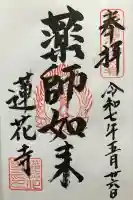 奉拝
令和七年五月廿六日
薬師如来
蓮花寺